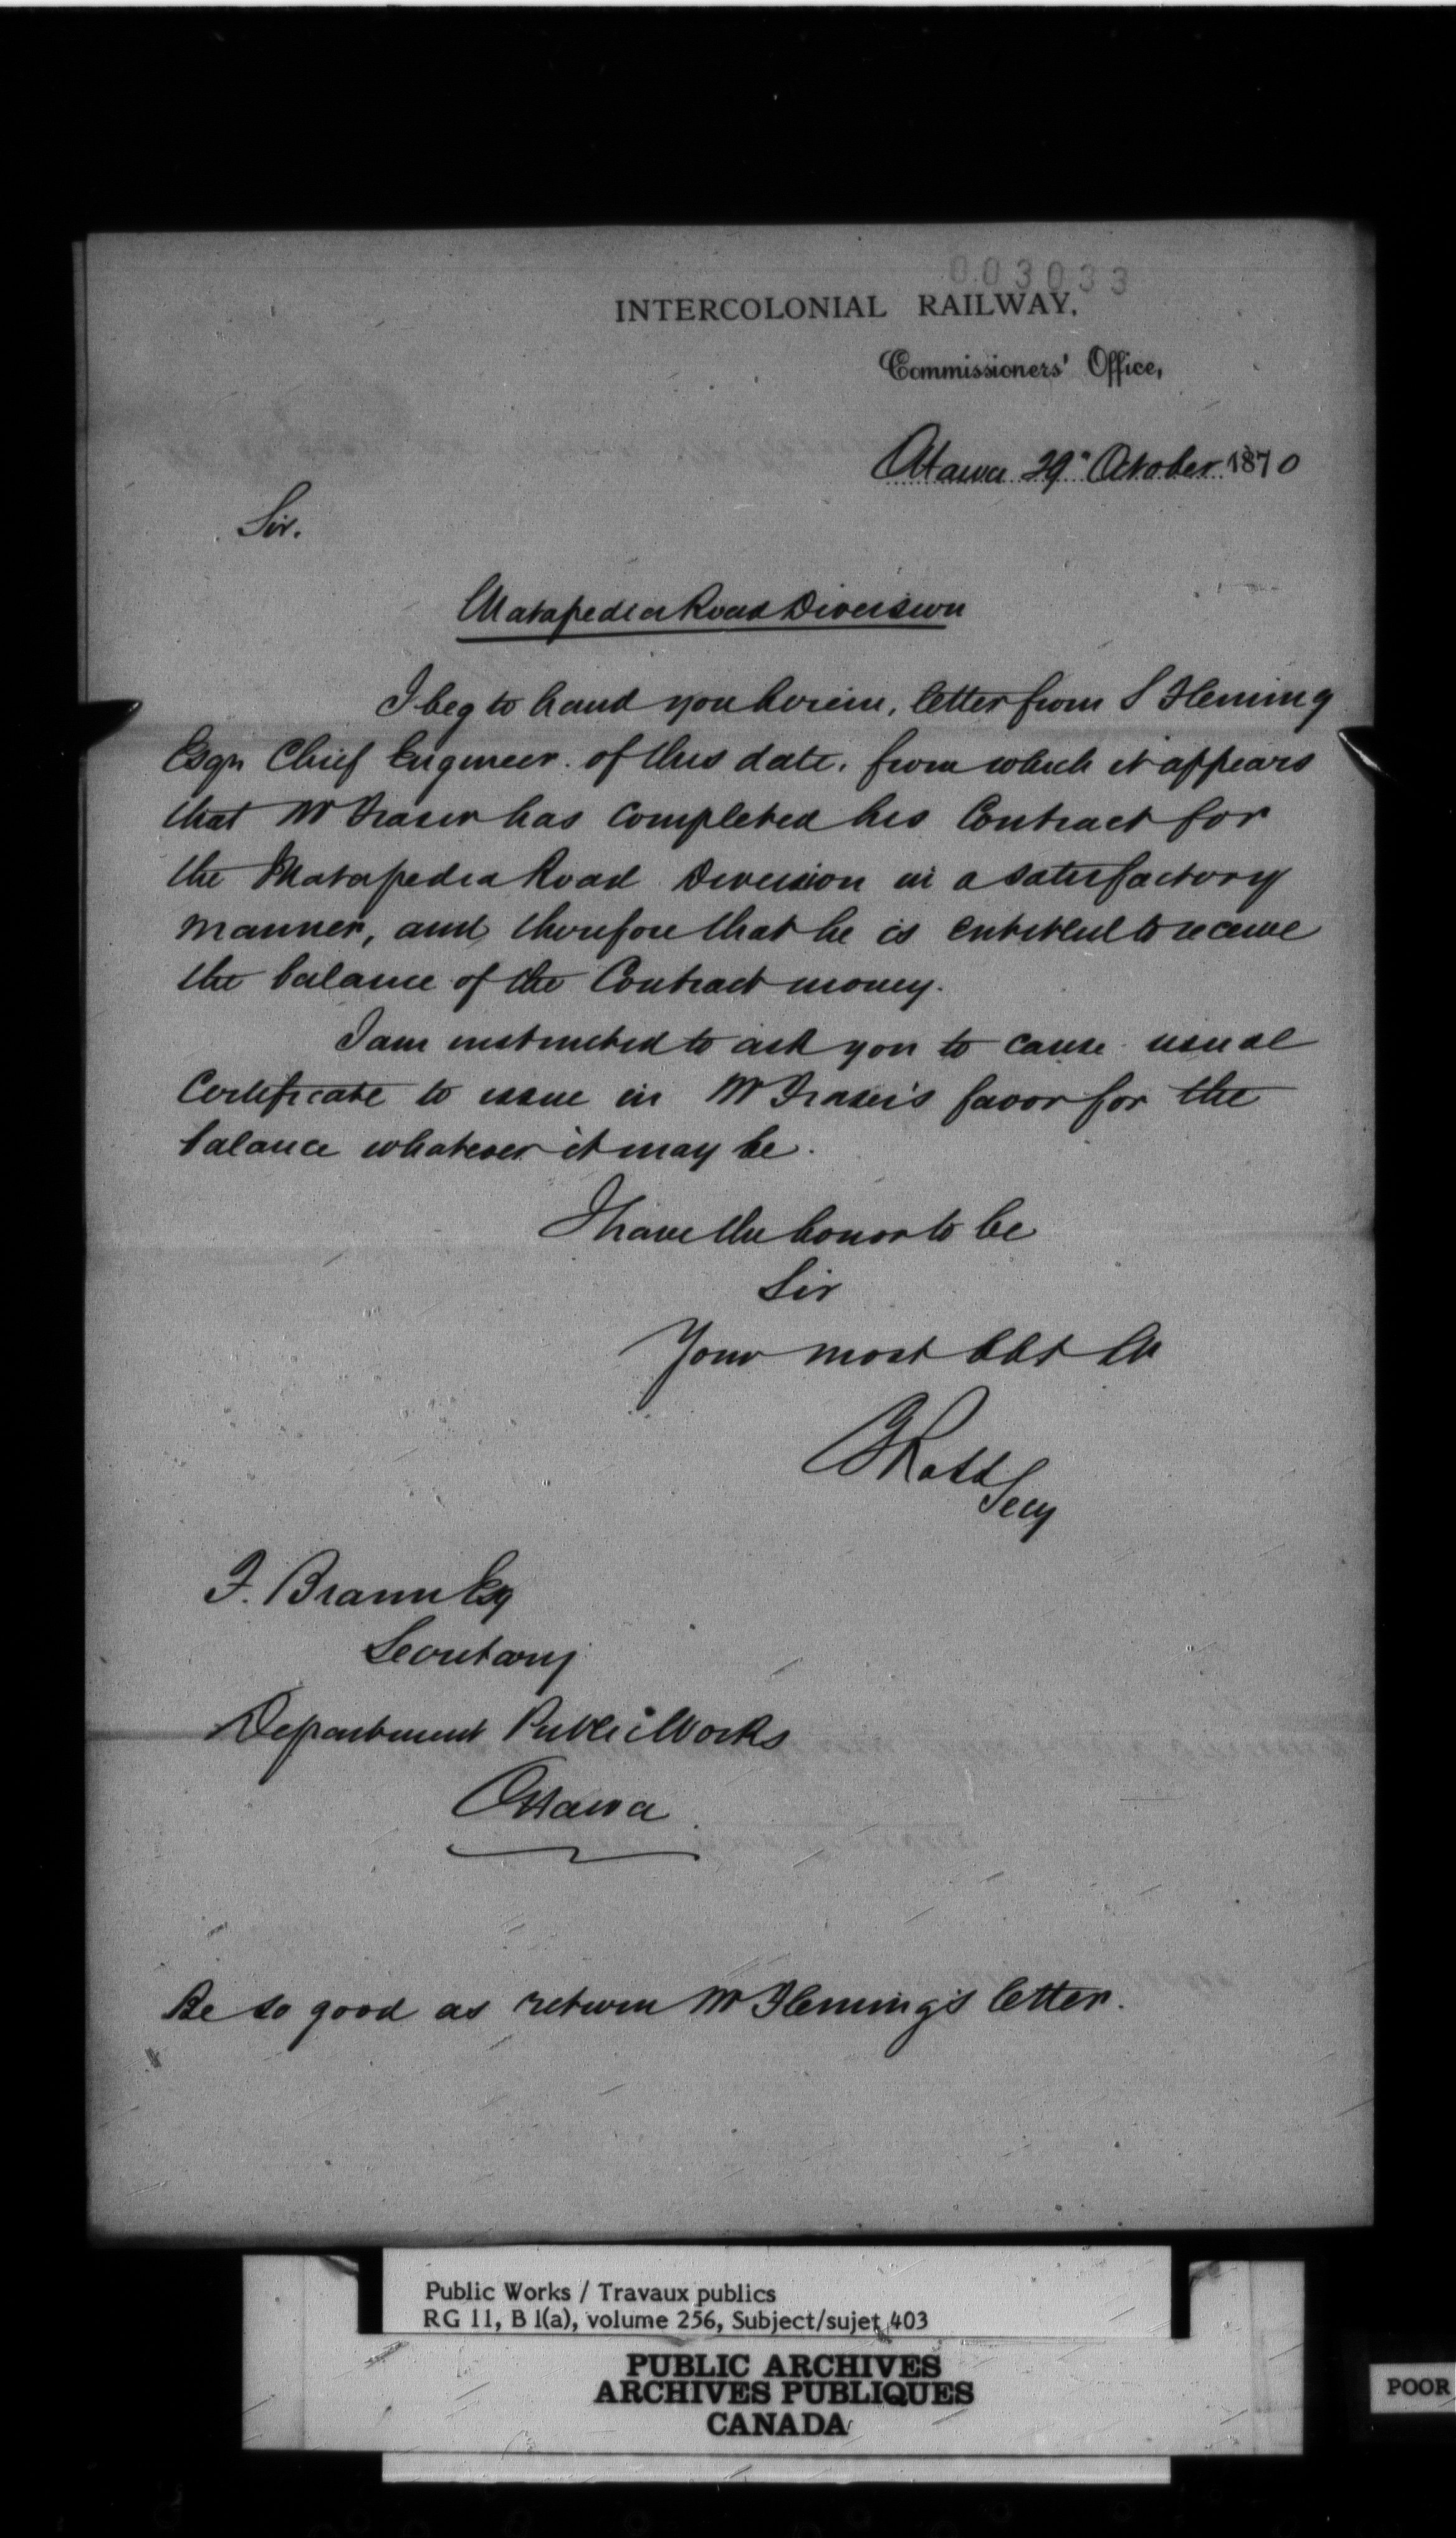 003033
INTERCOLONIAL RAILWAY,
Commissioners' Office,
Ottawa 29" October 1870
Sir.
Matapedia Road Diversion
I beg to hand you herein, letter from S Fleming
Esqr Chief Engineer. of this date. from which it appears
that Mr Fraser has completed his Contract for
the Matapedia Road Diversion in a satisfactory
manner, and therefore that he is entitled to receive
the balance of the Contract money.
I am instructed to ask you to cause usual
Certificate to issue in Mr Fraser's favor for the
balance whatever it may be.
I have the honor to be
Sir
Your most Obt
Secy
F. Braun Esq
Secretary
Department Public Works
Ottawa
Be so good as return Mr Fleming's letter.
Public Works / Travaux publics
RG 11, B 1(a), volume 256, Subject/sujet 403
PUBLIC ARCHIVES
ARCHIVES PUBLIQUES
CANADA
POOR